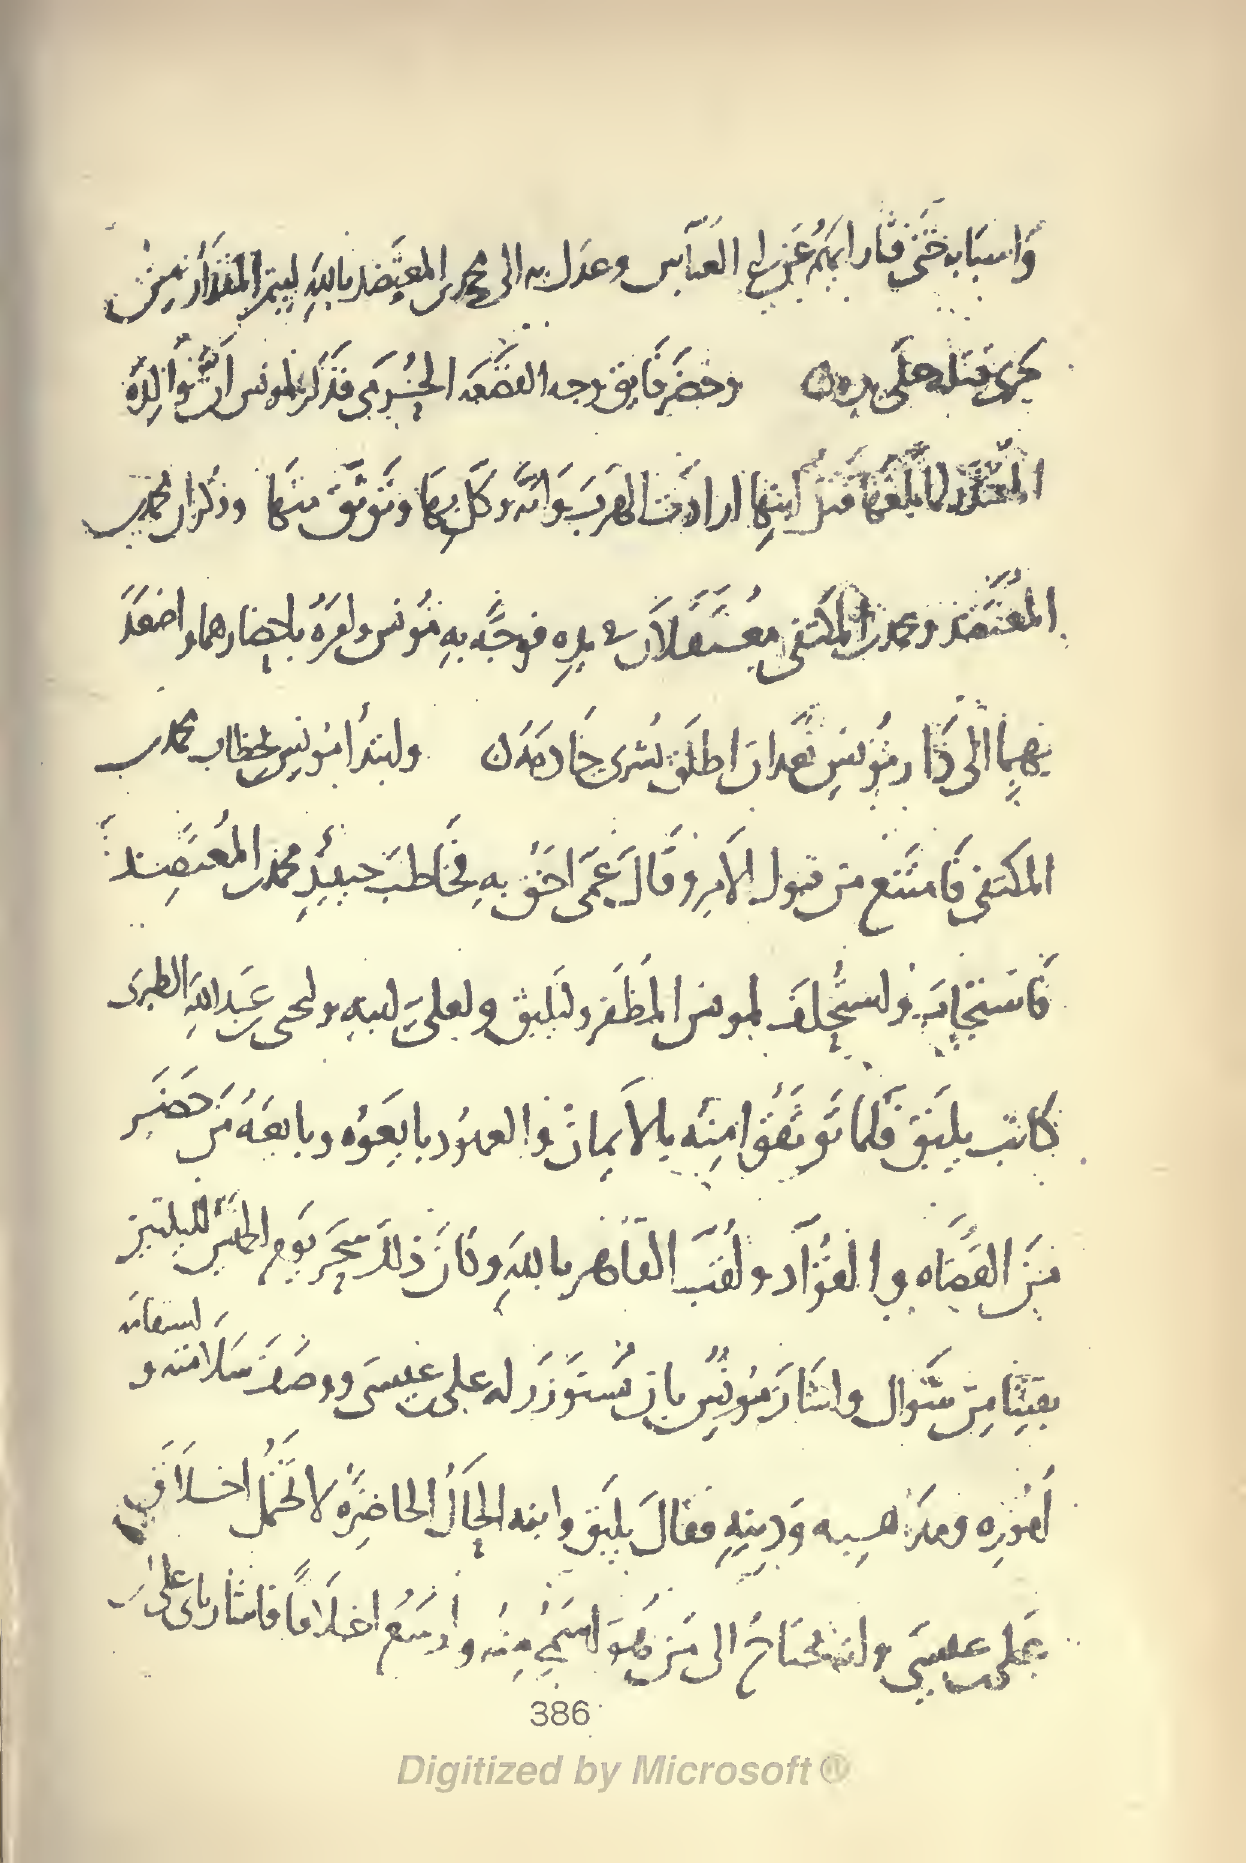 واسبابه حتى ثنا رايهم عن ابى العباس وعدل به الى محمد بن المعتضد بالله ليتم المقدار بمن
جرى قتله على يده ن وحضر فايق وجه القصعه الحرمى فذكر لمونس ان والده
المقتدر لما بلغها قتل ابنها ارادت الهرب وانه وكل بها وتوثق منها وذكر ان محمد بن
المعتضد ومحمد بن المكتفى معتقلان فى يده فوجه به مونس وامره باحضارهما واصعد
بهما الى دار مونس بعد ان اطلق بشرى خادمه ن وابتدا مونس بخطاب محمد بن
المكتفى فامتنع من قبول الامر وقال عمى احق به فخاطب حينئذ محمد بن المعتضد
فاستجاب واستحلف لمونس المظفر ولبليق ولعلى ابنه وليحيى بن عبد الله الطبرى
كاتب بليق فلما توثقوا منه بالايمان والعهود بايعوه وبايعه من حضر
من القضاه والقواد ولقب القاهر بالله وكان ذلك سحر يوم الخميس لليلتين
بقيتا من شوال واشار مونس بان يستوزر له على بن عيسى ووصف سلامته و استقامه
اموره ومذاهبه ودينه فقال بليق وابنه الحال الحاضره لا تحتمل اخلاق
على بن عيسى وانه يحتاج الى من هو اسمح منه واوسع اخلاقا فاشار بابى على بن
386
Digitized by Microsoft ®